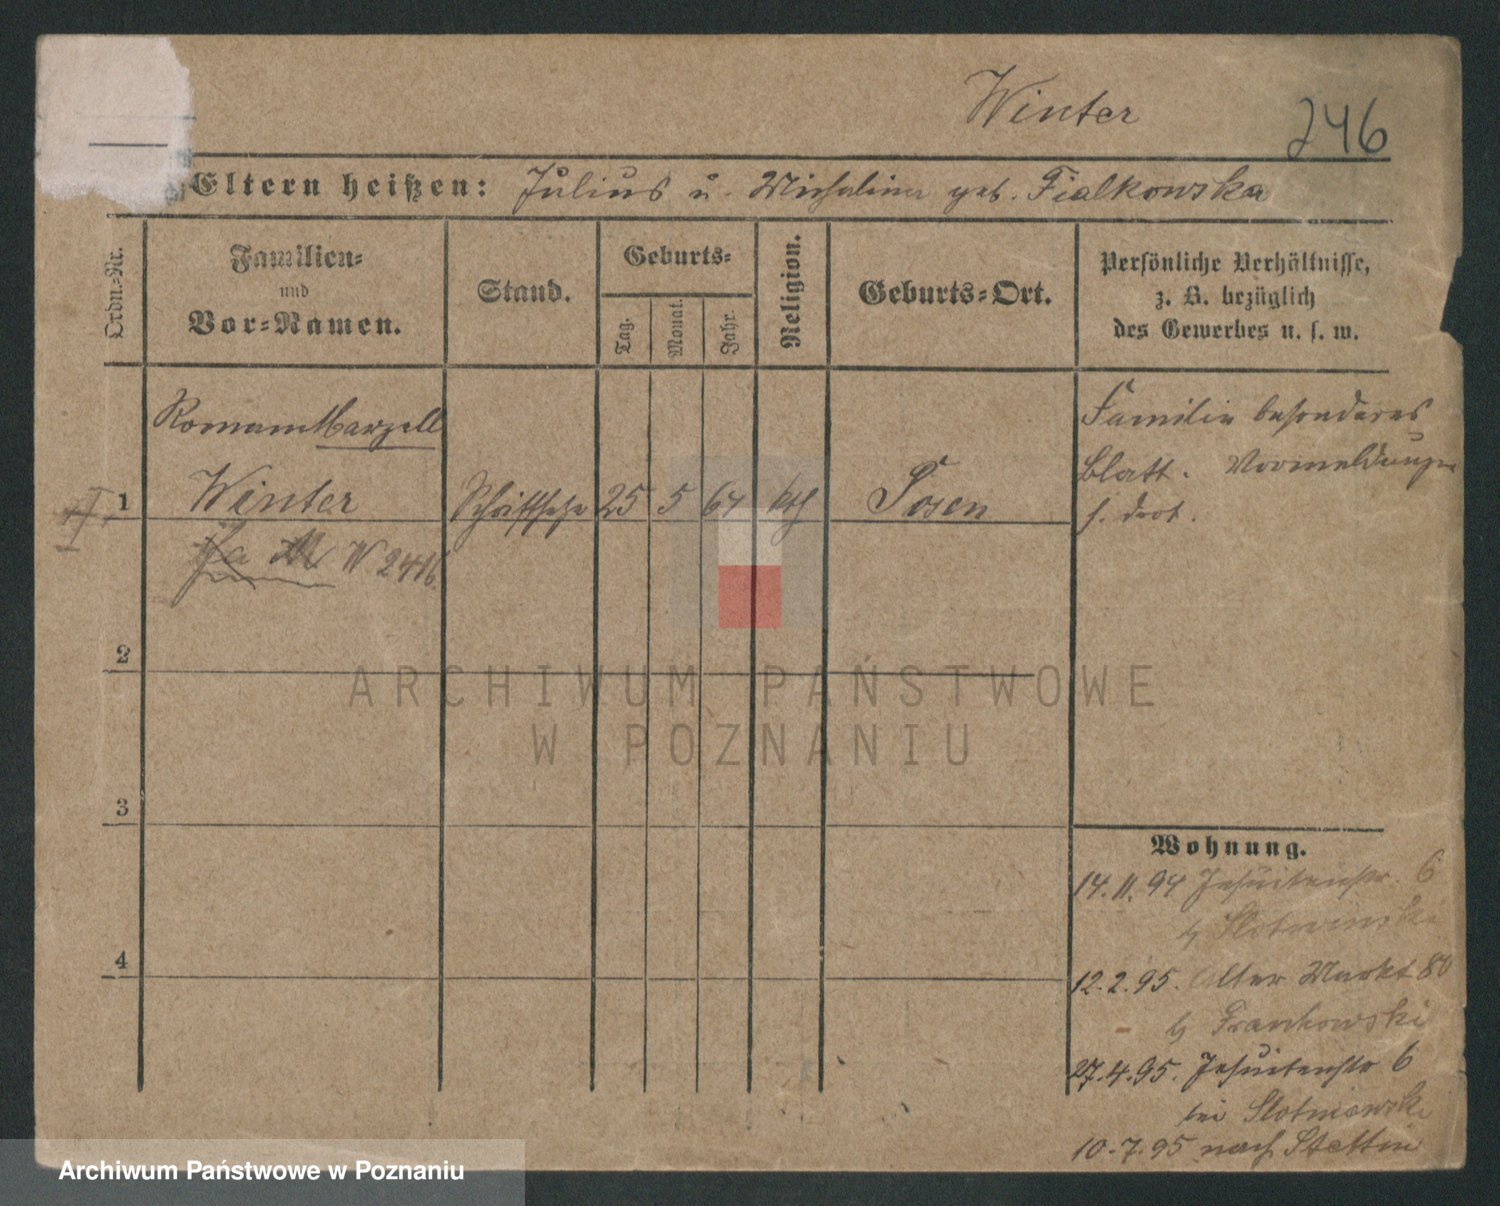 Winter
246
Eltern heißen: Julius u. Michalina geb. Fialkowska
Ordn.-Nr.
Familien-
und
Vor-Namen.
Stand.
Geburts-
Tag.
Monat.
Jahr.
Religion.
Geburts-Ort.
Persönliche Verhältnisse,
z. B. bezüglich
des Gewerbes u. s. w.
Roman Marzell
1 Winter Schriftsetzer 25 5 64 kth Posen
W 2416.
Familie besonderes
Blatt. Vormeldungen
s. dort.
2
3
4
Wohnung.
14.11.94 Jesuitenstr. 6
b/ Slotwinski
12.2.95. Alter Markt 80
b/ Frankowski
27.4.95. Jesuitenstr 6
bei
10.7.95 nach Stettin
ARCHIWUM PAŃSTWOWE
W POZNANIU
Archiwum Państwowe w Poznaniu